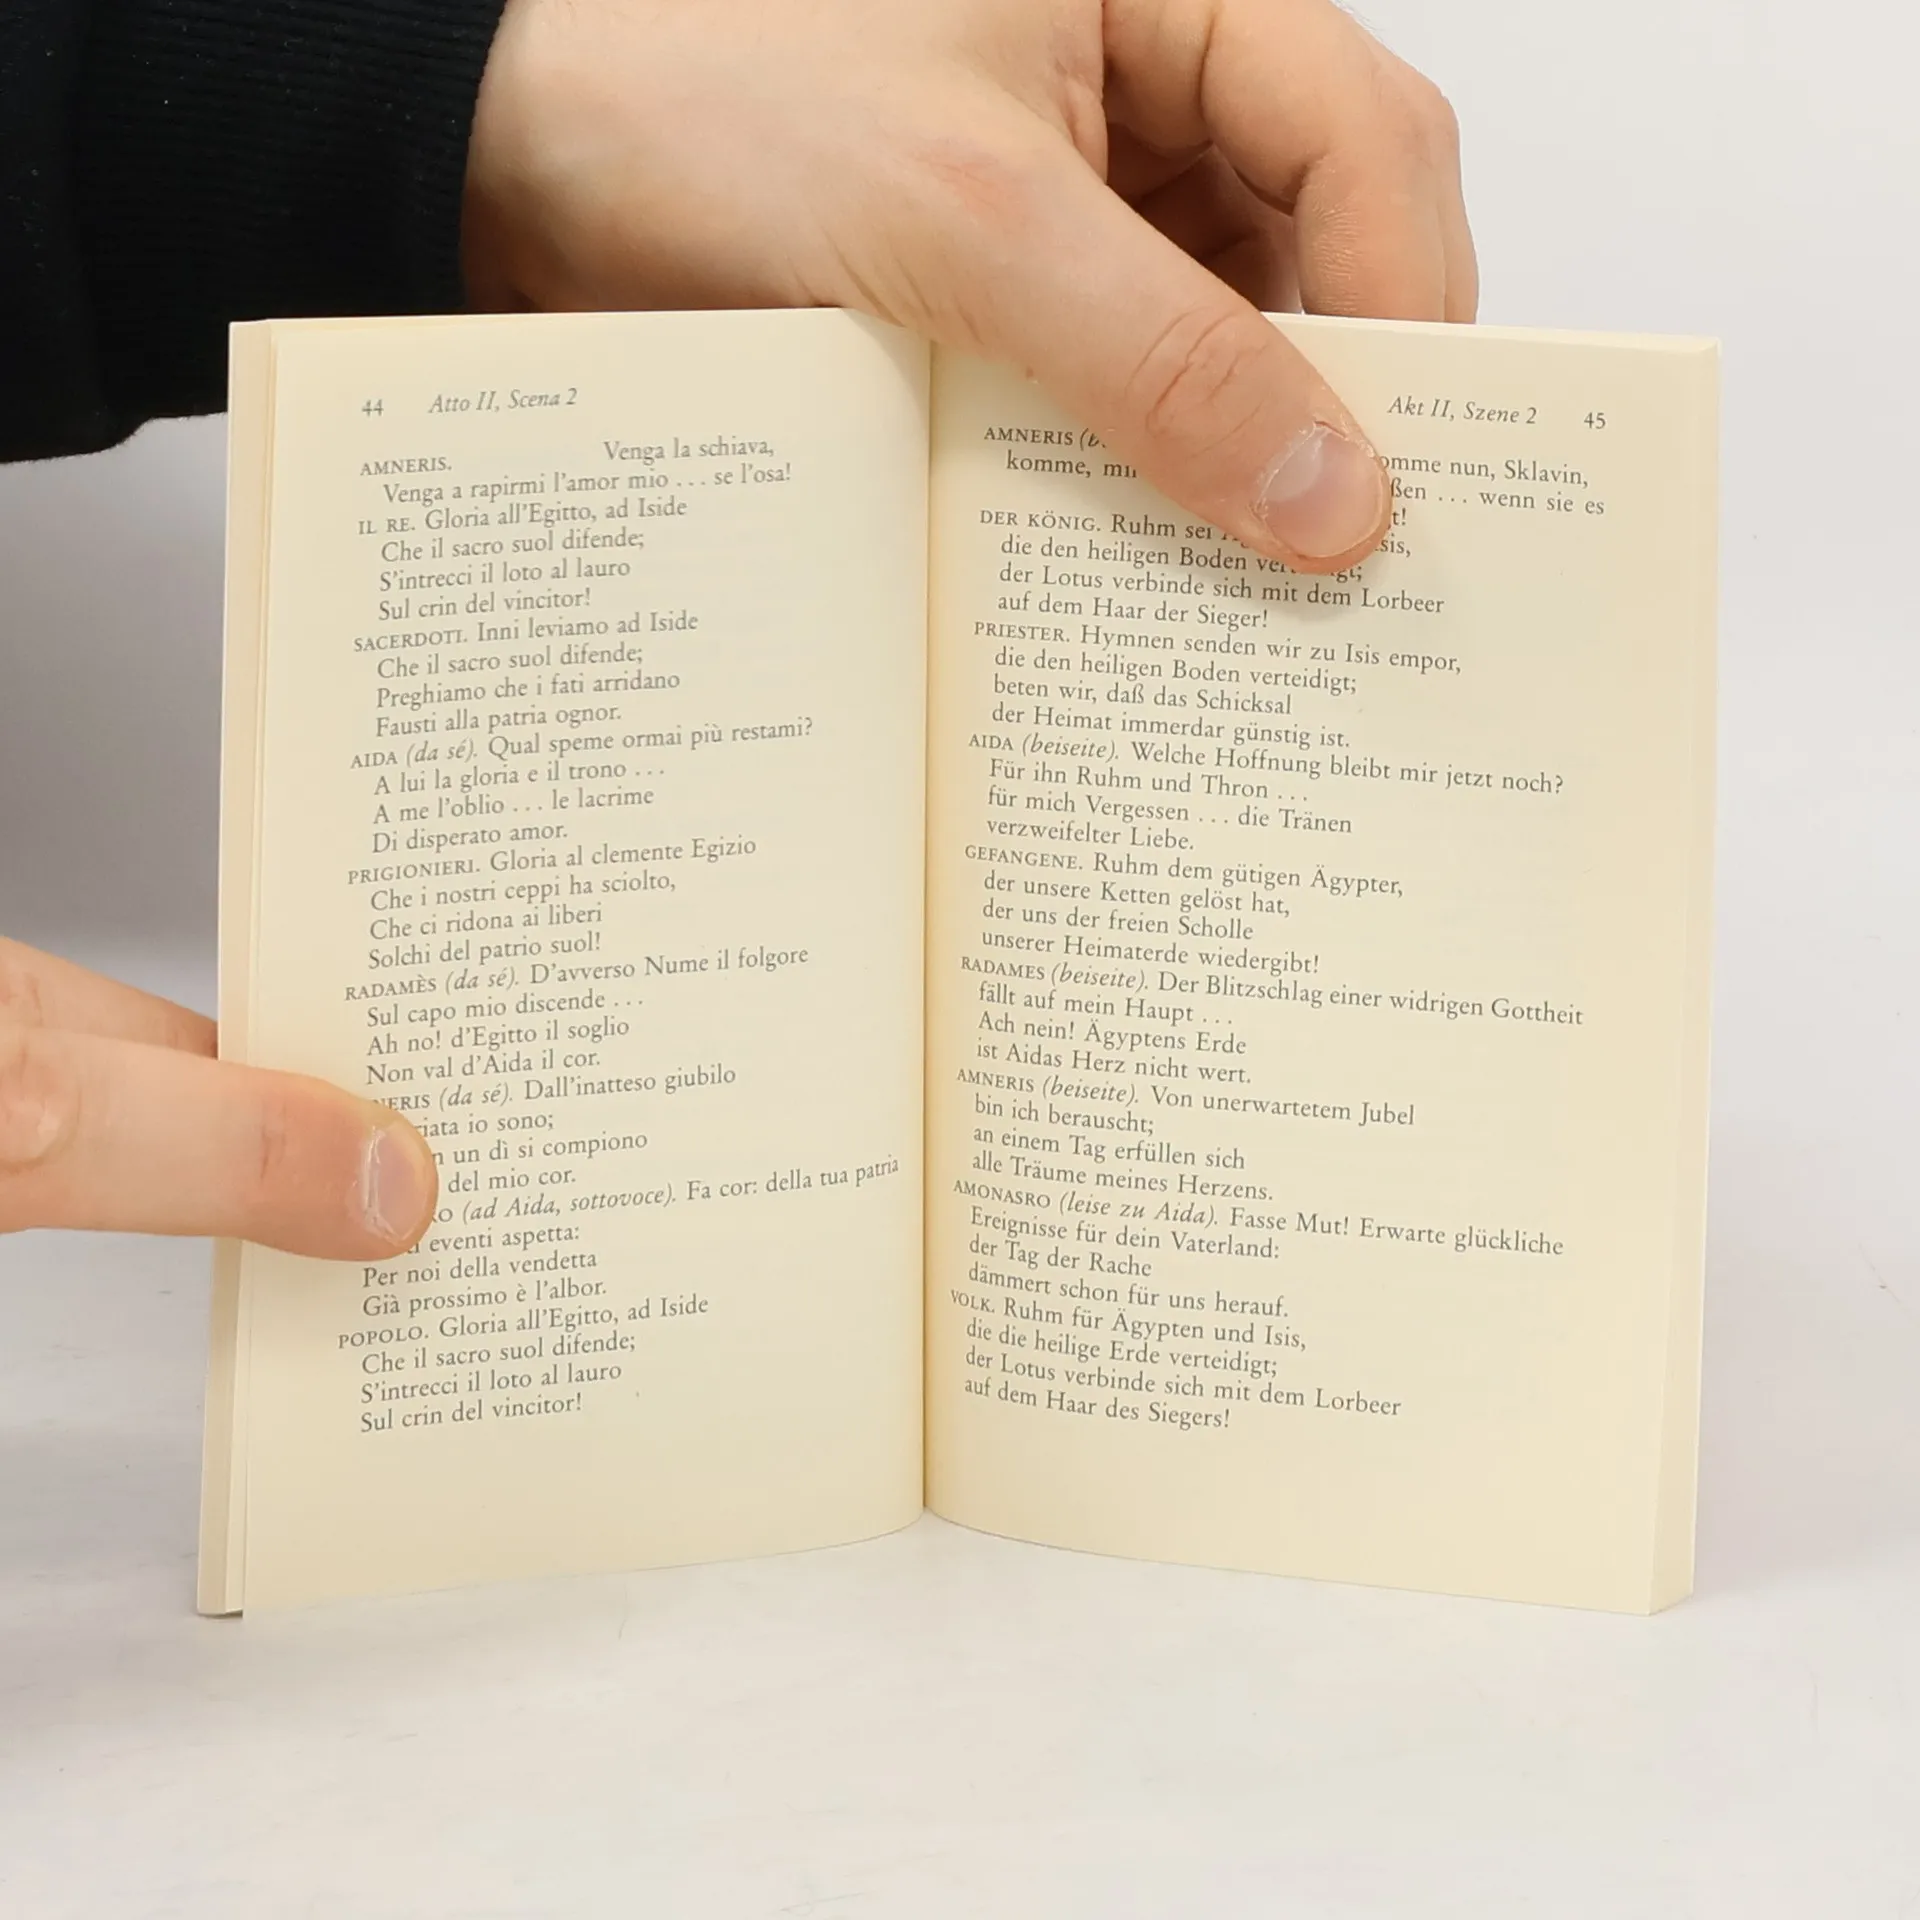 44 Atto II, Scena 2
AMNERIS. Venga la schiava,
Venga a rapirmi l'amor mio ... se l'osa!
IL RE. Gloria all'Egitto, ad Iside
Che il sacro suol difende;
S'intrecci il loto al lauro
Sul crin del vincitor!
SACERDOTI. Inni leviamo ad Iside
Che il sacro suol difende;
Preghiamo che i fati arridano
Fausti alla patria ognor.
AIDA (da sé). Qual speme ormai più restami?
A lui la gloria e il trono ...
A me l'oblio ... le lacrime
Di disperato amor.
PRIGIONIERI. Gloria al clemente Egizio
Che i nostri ceppi ha sciolto,
Che ci ridona ai liberi
Solchi del patrio suol!
RADAMÈS (da sé). D'avverso Nume il folgore
Sul capo mio discende ...
Ah no! d'Egitto il soglio
Non val d'Aida il cor.
(da sé). Dall'inatteso giubilo
io sono;
un dì si compiono
del mio cor.
(ad Aida, sottovoce). Fa cor: della tua patria
eventi aspetta:
Per noi della vendetta
Già prossimo è l'albor.
POPOLO. Gloria all'Egitto, ad Iside
Che il sacro suol difende;
S'intrecci il loto al lauro
Sul crin del vincitor!
Akt II, Szene 2 45
AMNERIS nun, Sklavin,
komme, ... wenn sie es
DER KÖNIG. Ruhm sei
die den heiligen Boden
der Lotus verbinde sich mit dem Lorbeer
auf dem Haar der Sieger!
PRIESTER. Hymnen senden wir zu Isis empor,
die den heiligen Boden verteidigt;
beten wir, daß das Schicksal
der Heimat immerdar günstig ist.
AIDA (beiseite). Welche Hoffnung bleibt mir jetzt noch?
Für ihn Ruhm und Thron ...
für mich Vergessen ... die Tränen
verzweifelter Liebe.
GEFANGENE. Ruhm dem gütigen Ägypter,
der unsere Ketten gelöst hat,
der uns der freien Scholle
unserer Heimaterde wiedergibt!
RADAMES (beiseite). Der Blitzschlag einer widrigen Gottheit
fällt auf mein Haupt ...
Ach nein! Ägyptens Erde
ist Aidas Herz nicht wert.
AMNERIS (beiseite). Von unerwartetem Jubel
bin ich berauscht;
an einem Tag erfüllen sich
alle Träume meines Herzens.
AMONASRO (leise zu Aida). Fasse Mut! Erwarte glückliche
Ereignisse für dein Vaterland:
der Tag der Rache
dämmert schon für uns herauf.
VOLK. Ruhm für Ägypten und Isis,
die die heilige Erde verteidigt;
der Lotus verbinde sich mit dem Lorbeer
auf dem Haar des Siegers!